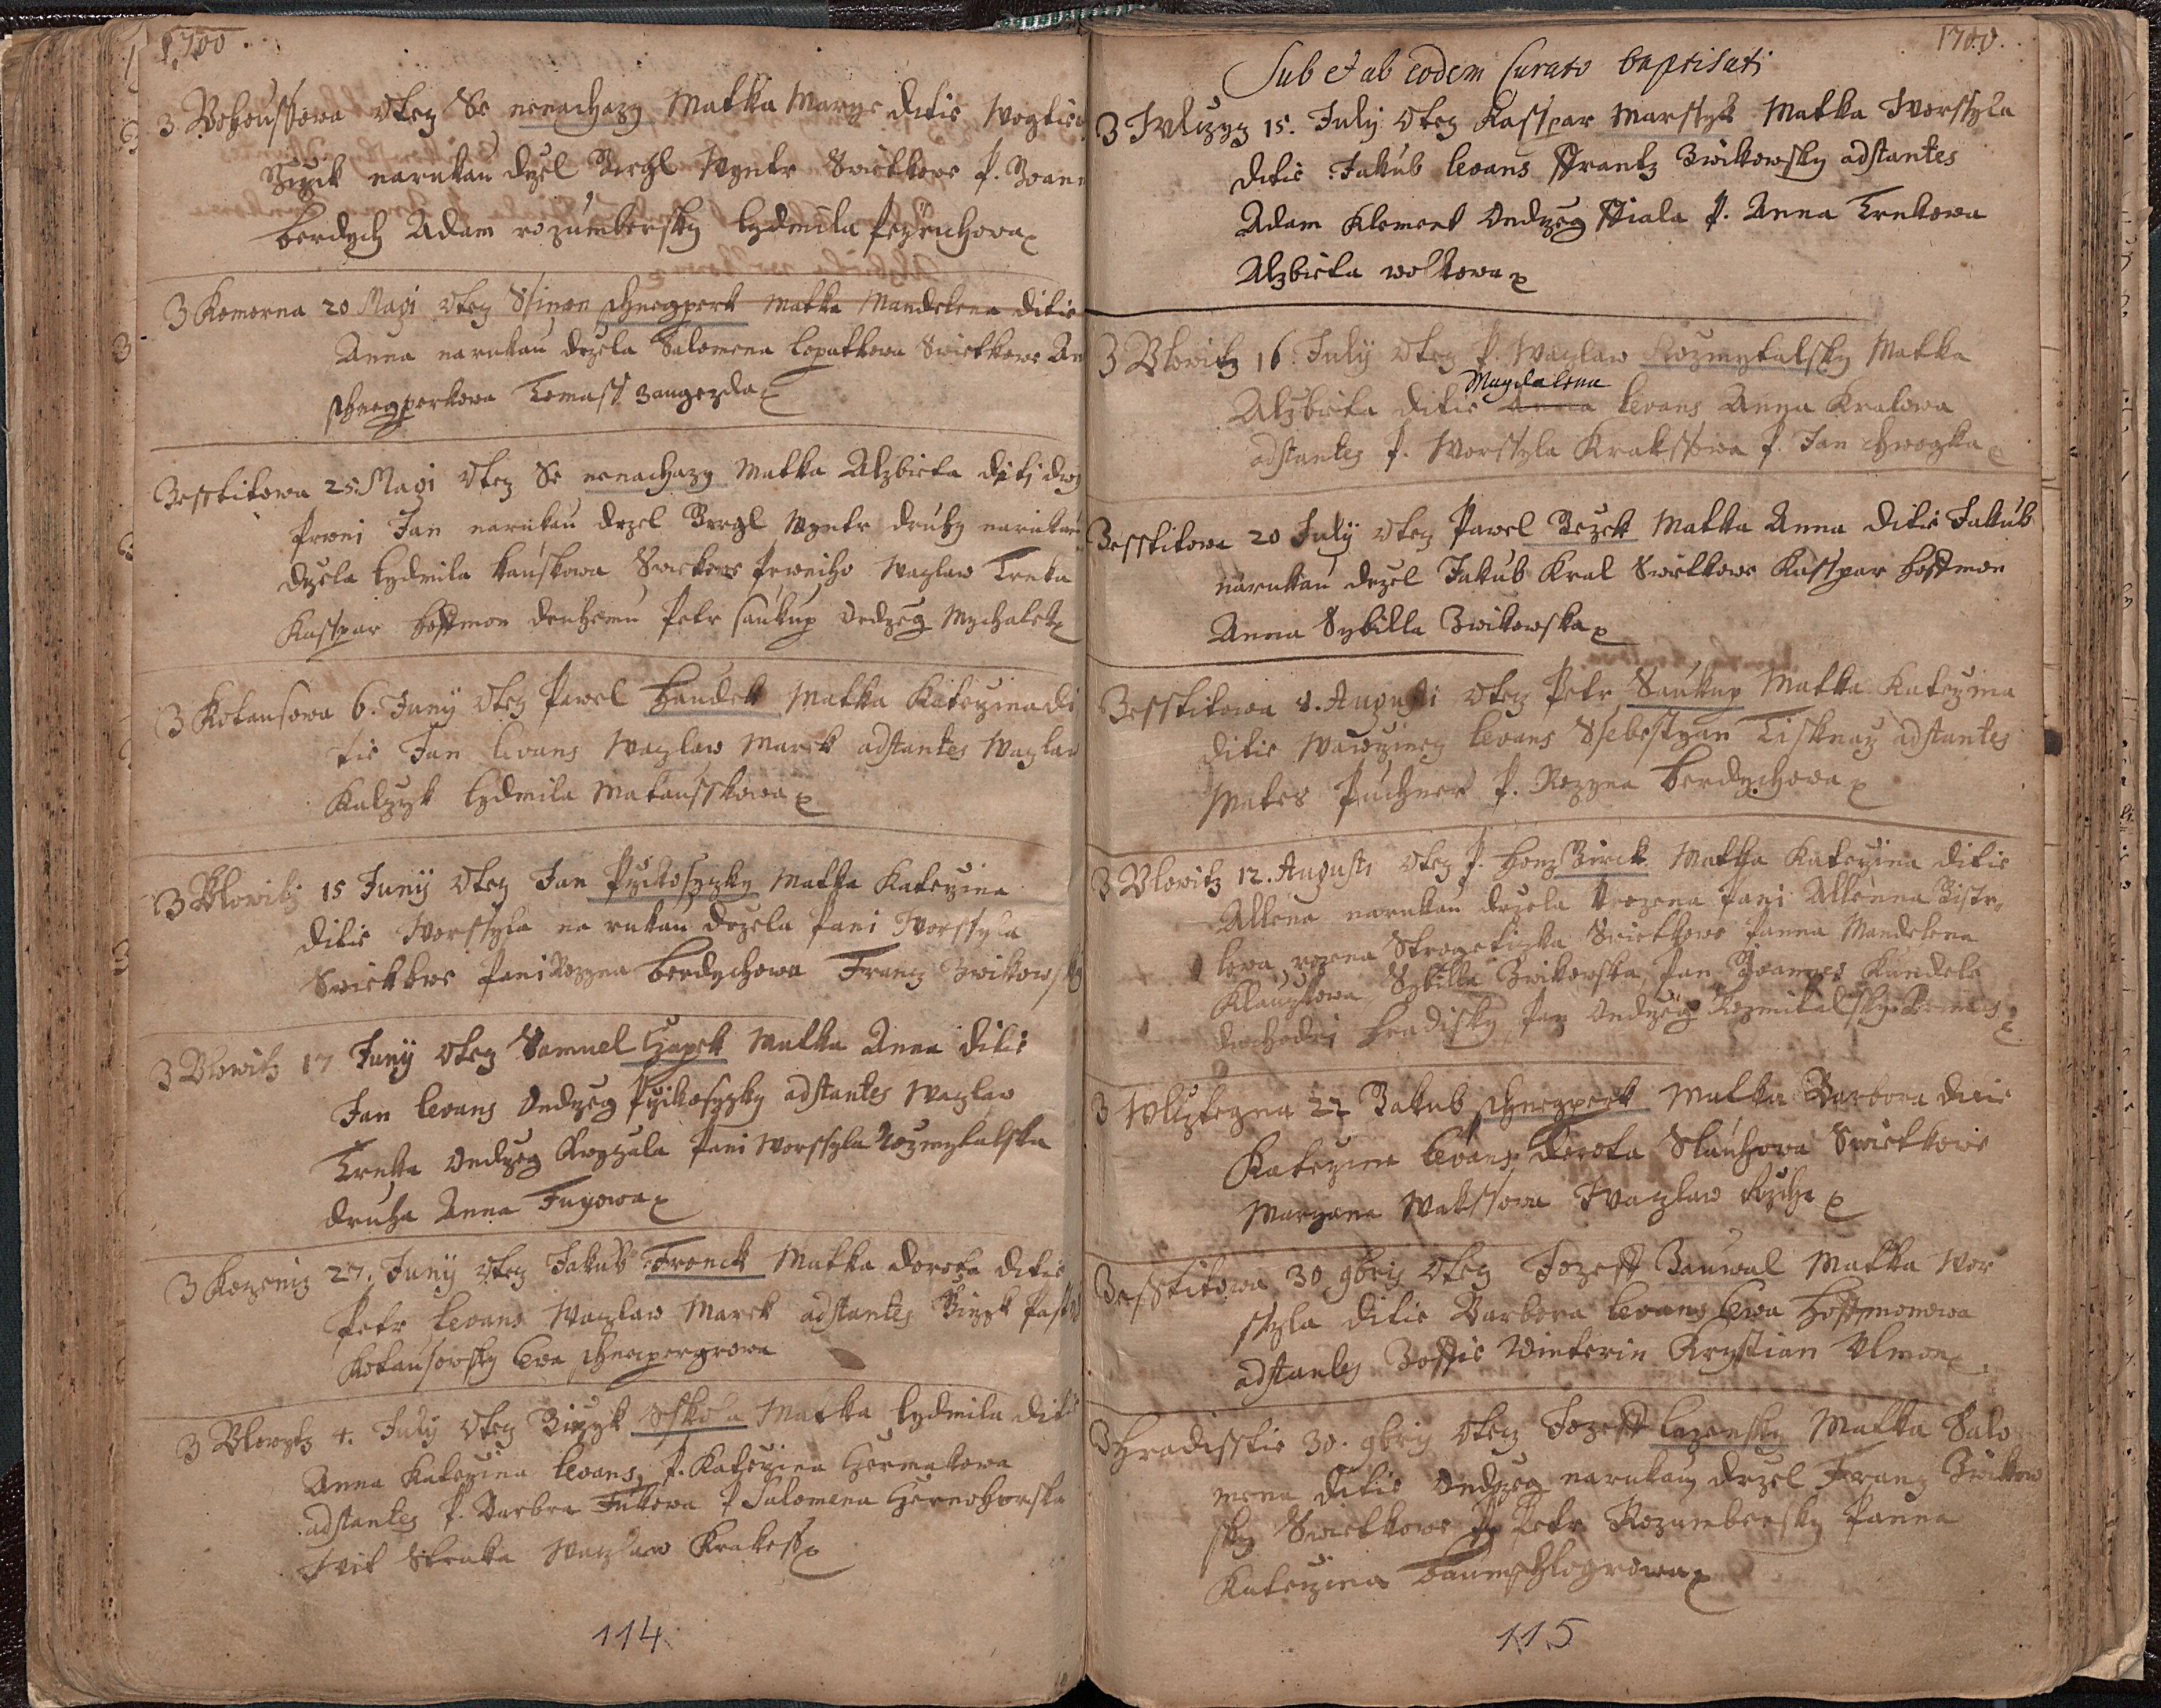 1700
Z Bohoussowa Otecz Se nenachazy Matka Marye ditie Wogtiech
narukau drzel Birgl Wyntr Swietkowe P.
Berdych Adam rozumbersky Lydmila
Z Komorna 20 Magi Otecz Ssimon Shnegperk Matka Mandelena ditie
Anna narukau drzela Salomena Lopatkowa Swietkowe An
Shnegperkowa Tomass Zaugezda
Zesstitowa 25 Magi Otecz Se nenachazy Matka Alzbieta diti dwogi
Prwni Jan narukau drzel Birgl Wyntr druhy narukau
drzela Lydmila Kauskowa Swietkowe Prwniho Waczlaw Trnka
Kasspar Hoffmon druhemu Petr Saukup Ondrzeg Mychalek
Z Kotausowa 6. Juny Otecz Pawel Handek Matka Katerzina di
tie Jan Levans Waczlaw Marek adstantes Waczlaw
Kalczyk Lydmila Matausskowa
Z Blowitz 15 Juny Otecz Jan Przikosyczky Matka Katerzina
ditie Worssyla na rukau drzela Pani Worssyla
Swietkowe Pani Rozyna Berdychowa Francz Zwikowsky
Z Blowitz 17 Juny Otecz Samuel Czapek Matka Anna ditie
Jan Levans Ondrzeg Przikosyczky adstantes Waczlaw
Trnka Ondrzeg Pani Worssyla Rozmytalska
druha Anna Fugowa
Z Kozenicz 27. Juny Otecz Jakub Fronek Matka dorota ditie
Petr Levans Waczlaw Marek adstantes Birzyk Past
Kotausowsky Ewa Shneapergrowa
Z Blowytz 4. July Otecz Birzyk Sskola Matka Lydmila ditie
Anna Katerzina Levans P. Katerzina Czermakowa
adstantes P. Barbra Fukowa P Salomena Czernohorska
Wit Straka Waczlaw Krakess
114
1700.
Sub et ab eodem Curato baptisati
Z Wlczycz 15. July Otecz Kasspar Marssyk Matka Worssyla
ditie Jakub Levans Ffrantz Zwikowsky adstantes
Adam Klement Ondrzeg Ffiala P. Anna Trnkowa
Alzbieta Wolkowa
Z Blowitz 16 July Otecz P. Waczlaw Rozmytalsky Matka
Magdalena
Alzbieta ditie Anna Levans Anna Kralowa
adstantes P. Worssyla Krakssowa P. Jan Hwogka
Zesstitowa 20 July Otecz Pawel Rezek Matka Anna ditie Jakub
narukau drzel Jakub Kral Swietkowe Kasspar Hoffmon
Anna Sybilla Zwikowska
Zesstitowa 8. Augusti Otecz Petr Saukup Matka Katerzina
ditie Wawrzinecz Levans Ssebestyan Tisknaz adstantes
Mates Puchner P. Rozyna Berdychowa
Z Blowitz 12. Augusti Otecz P. Honz Birck Matka Katerzina ditie
Allena narukau drzela Urozena Pani Allenna Bistr-
Swietkowe Panna Mandelena
Klauzkowa Sybilla Zwikowska Pan Joannes Kundele
duchodni Hradisky Pan Ondrzeg Rozmitalsky
Z Wlcztegna 22 Jakub Shnegperk Matka Barbora ditie
Katerzina Levans Dorota Slauhowa Swietkowe
Maryana Wakssowa Waczlaw
Zesstitowa 30 9bris Otecz Jozeff Zauwal Matka Wor
ssyla ditie Barbora Levans Ewa Hoffmonowa
adstantes Zoffie Winterin Krystian Ulmon
Z Hradisstie 30. 9bris Otecz Jozeff Lazensky Matka Salo
mena ditie Ondrzeg narukau drzel Francz Zwikow
sky Swietkowe P. Petr Rozumbersky Panna
Katerzina Baumshlogrowa
115